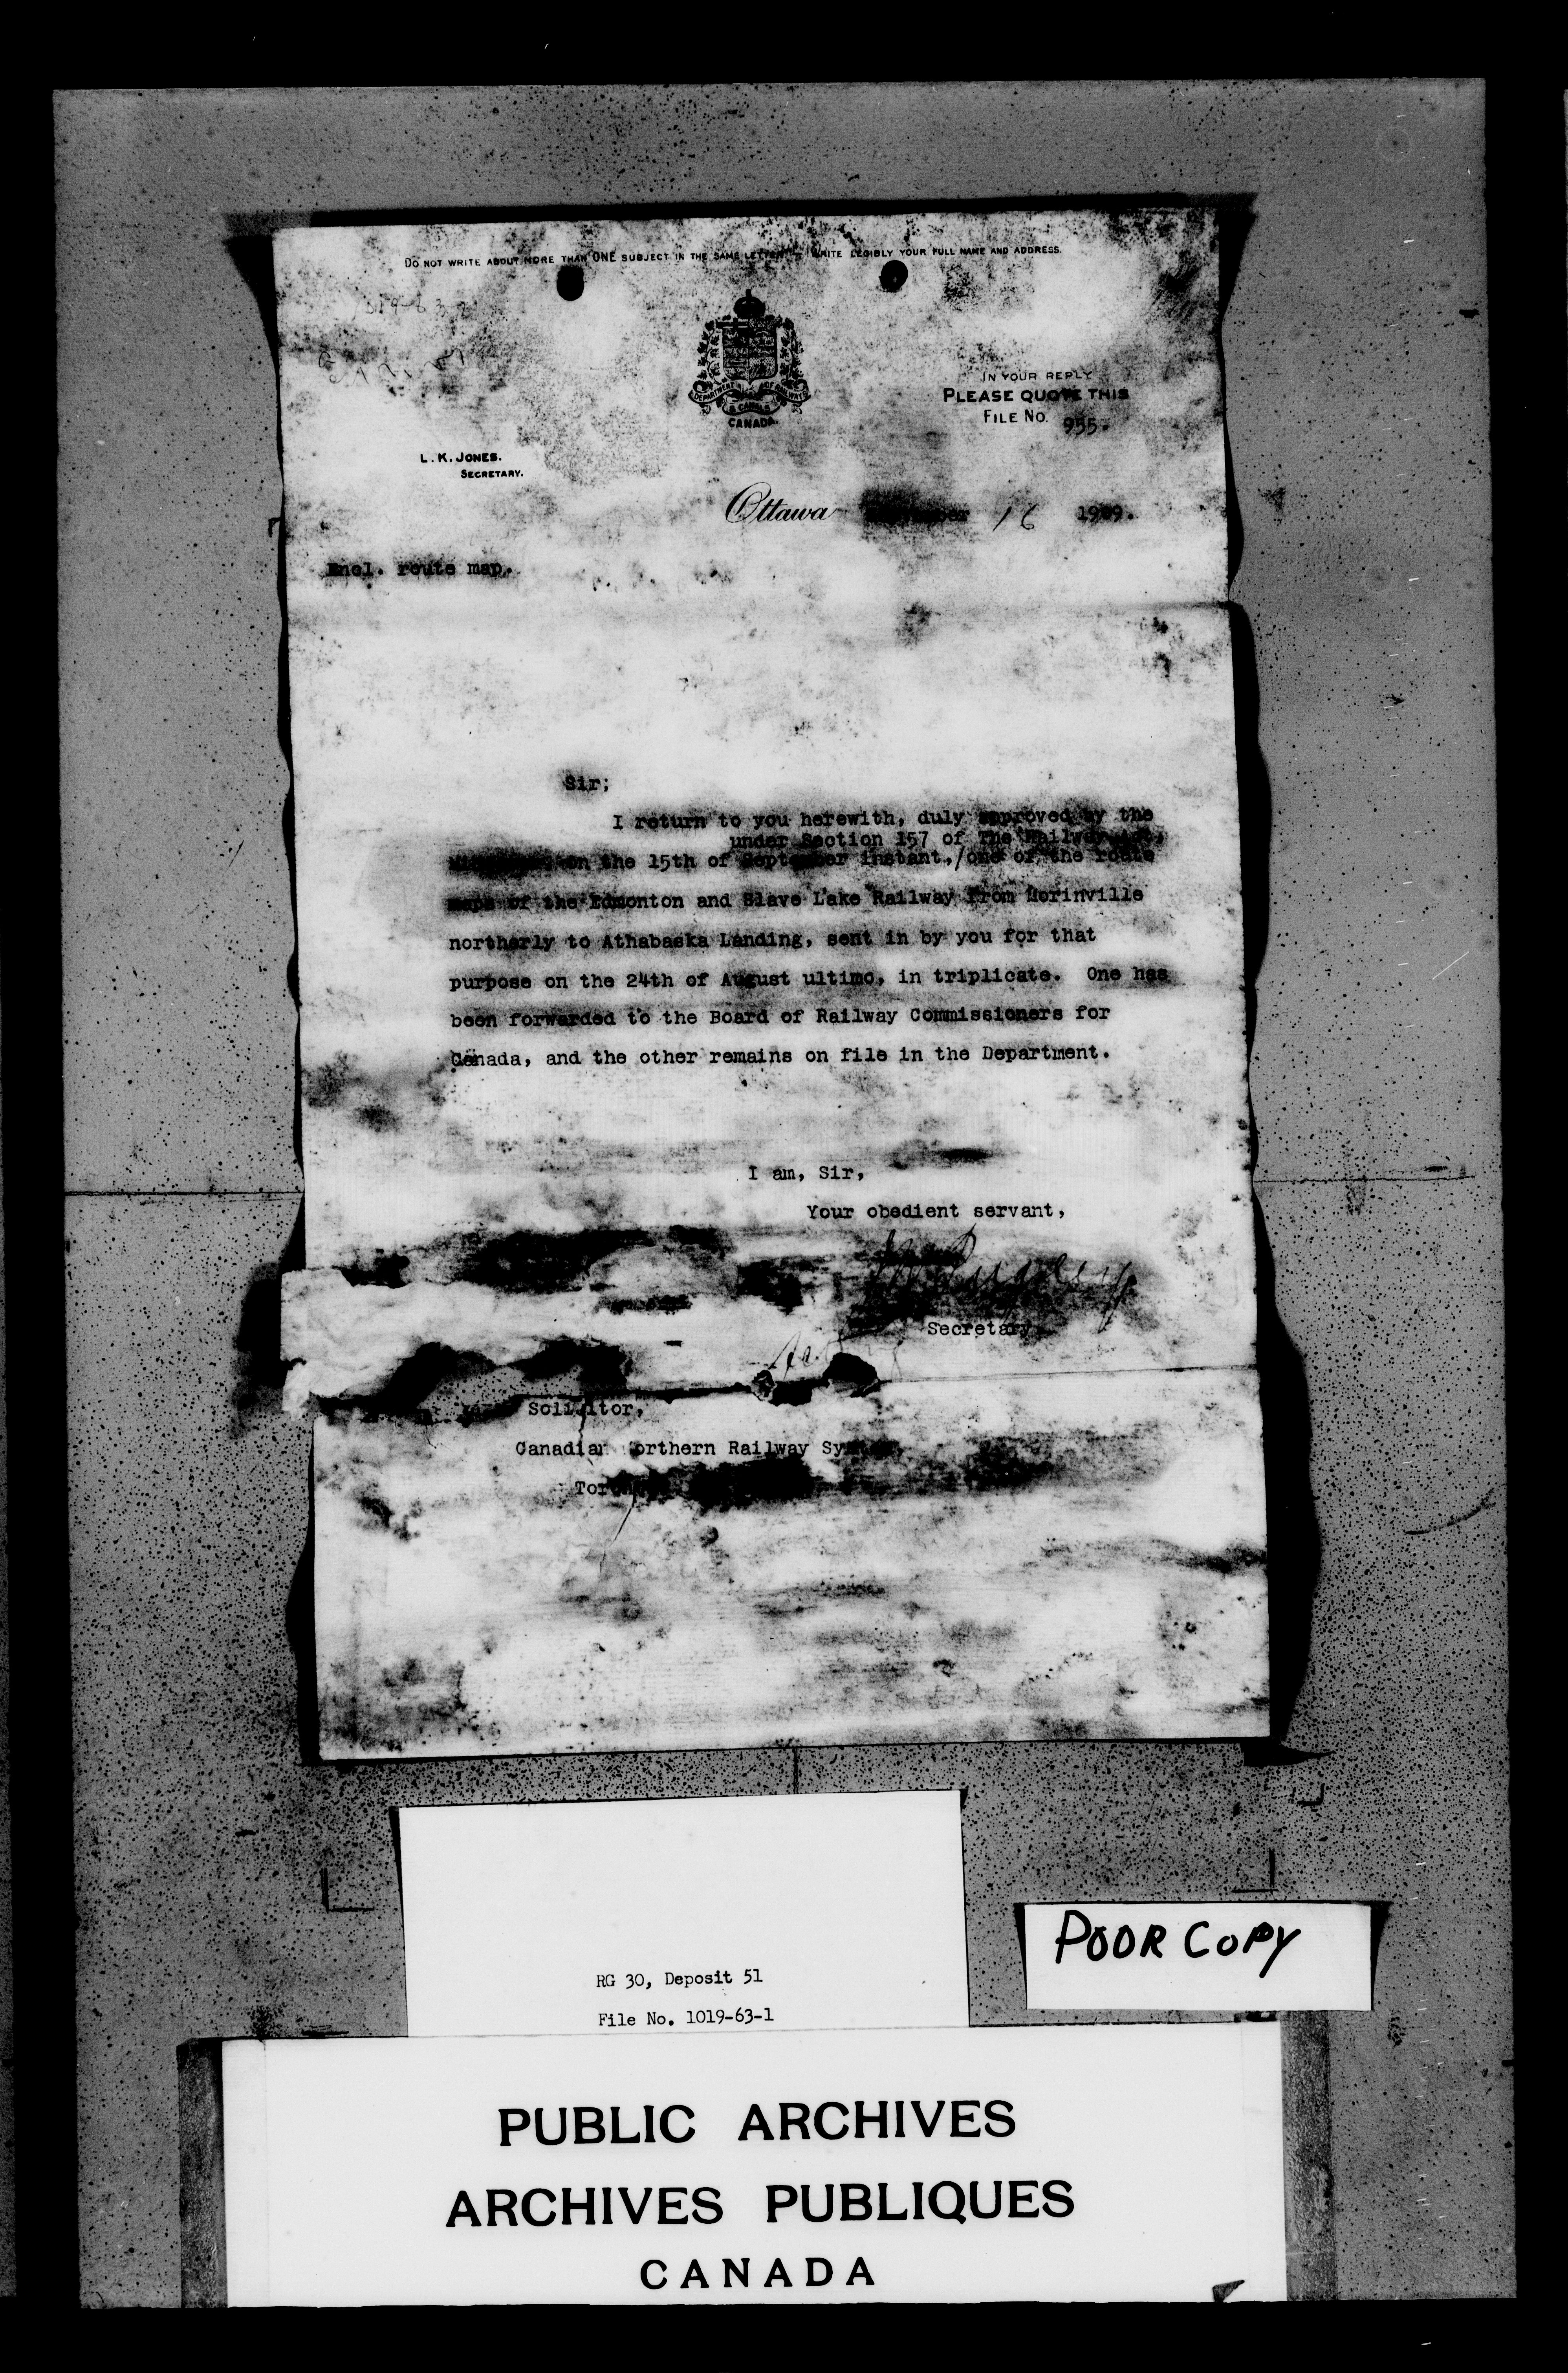 DO NOT WRITE ABOUT MORE THAN ONE SUBJECT IN THE SAME LETTER. WRITE LEGIBLY YOUR FULL NAME AND ADDRESS.
DEPARTMENT OF RAILWAYS
& CANALS
CANADA.
IN YOUR REPLY
PLEASE QUOTE THIS
FILE NO. 955.
L. K. JONES.
SECRETARY.
Ottawa 16 1909.
Encl. route map.
Sir;
I return to you herewith, duly approved by the
under Section 157 of The Railway Act,
on the 15th of September instant,/one of the route
maps of the Edmonton and Slave Lake Railway from Morinville
northerly to Athabaska Landing, sent in by you for that
purpose on the 24th of August ultimo, in triplicate. One has
been forwarded to the Board of Railway Commissioners for
Canada, and the other remains on file in the Department.
I am, Sir,
Your obedient servant,
Secretary.
Solicitor,
Canadian Northern Railway System,
POOR COPY
RG 30, Deposit 51
File No. 1019-63-1
PUBLIC ARCHIVES
ARCHIVES PUBLIQUES
CANADA